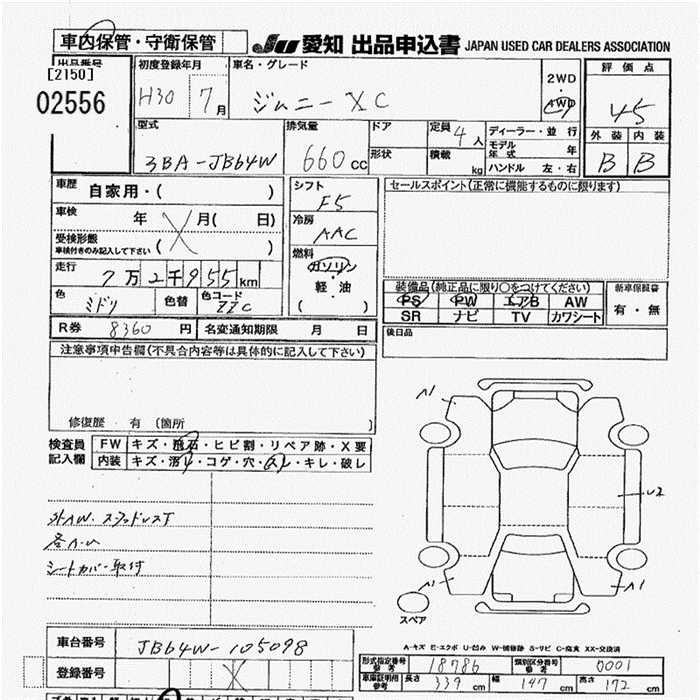 車内保管・守衛保管
JU 愛知 出品申込書 JAPAN USED CAR DEALERS ASSOCIATION
出品番号
[2150]
02556
初度登録年月
H30 7月
車名・グレード
ジムニー XC
2WD
4WD
評価点
4.5
型式
3BA-JB64W
排気量
660cc
ドア
形状
定員 4人
積載 kg
ディーラー・並行
モデル年式 年
ハンドル 左・右
外装 内装
B B
車歴 自家用・( )
車検 年 月( 日)
受検形態
車検付きのみ記入して下さい ( )
走行 7万2千955km
色 ミドリ 色替 色コード ZZC
シフト
F5
冷房
AAC
燃料
ガソリン・
軽・油
( )
セールスポイント(正常に機能するものに限ります)
装備品(純正品に限り○をつけてください)
PS PW エアB AW
SR ナビ TV カワシート
新車保証書
有・無
R券 8360円 名変通知期限 月 日
後日品
注意事項申告欄(不具合内容等は具体的に記入して下さい)
修復歴 有 (箇所 )
検査員
記入欄
FW キズ・飛石・ヒビ割・リペア跡・X要
内装 キズ・汚レ・コゲ・穴・スレ・キレ・破レ
外AW・スタッドレスT
各A・U
シートカバー取付
A1
U2
A1
A1
スペア
A-キズ E-エクボ U-凹み W-補修跡 S-サビ C-腐食 XX-交換済
車台番号 JB64W-105098
登録番号
形式指定番号 参考 18786
類別区分番号 参考 0001
車庫証明用 参考 長さ 339cm 幅 147cm 高さ 172cm